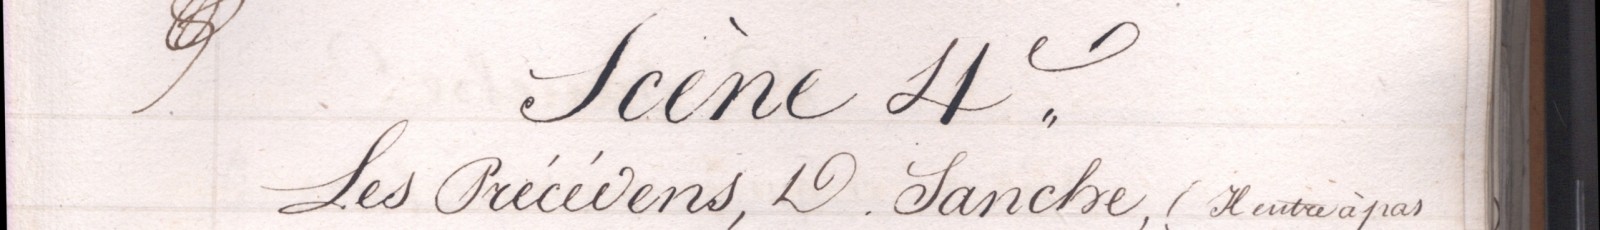 Scène 4e.
Les Précédens, D. Sanche, (Il entre à pas